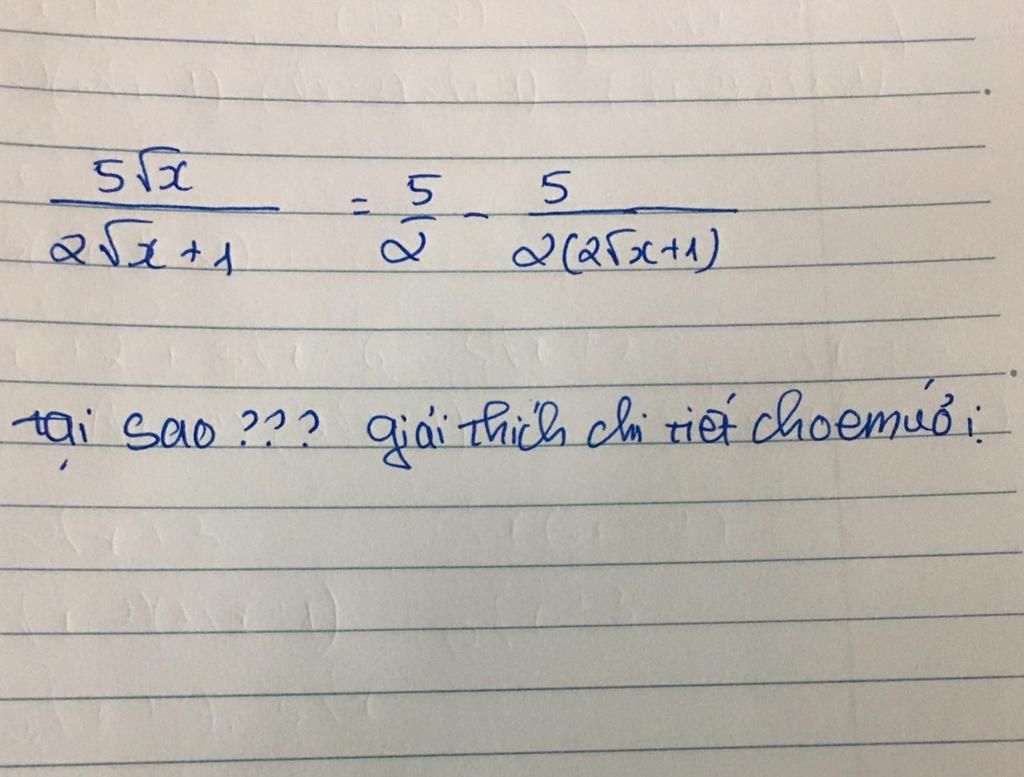 5√x / 2√x + 1 = 5/2 - 5 / 2(2√x+1)
tại sao ??? giải thích chi tiết cho em với